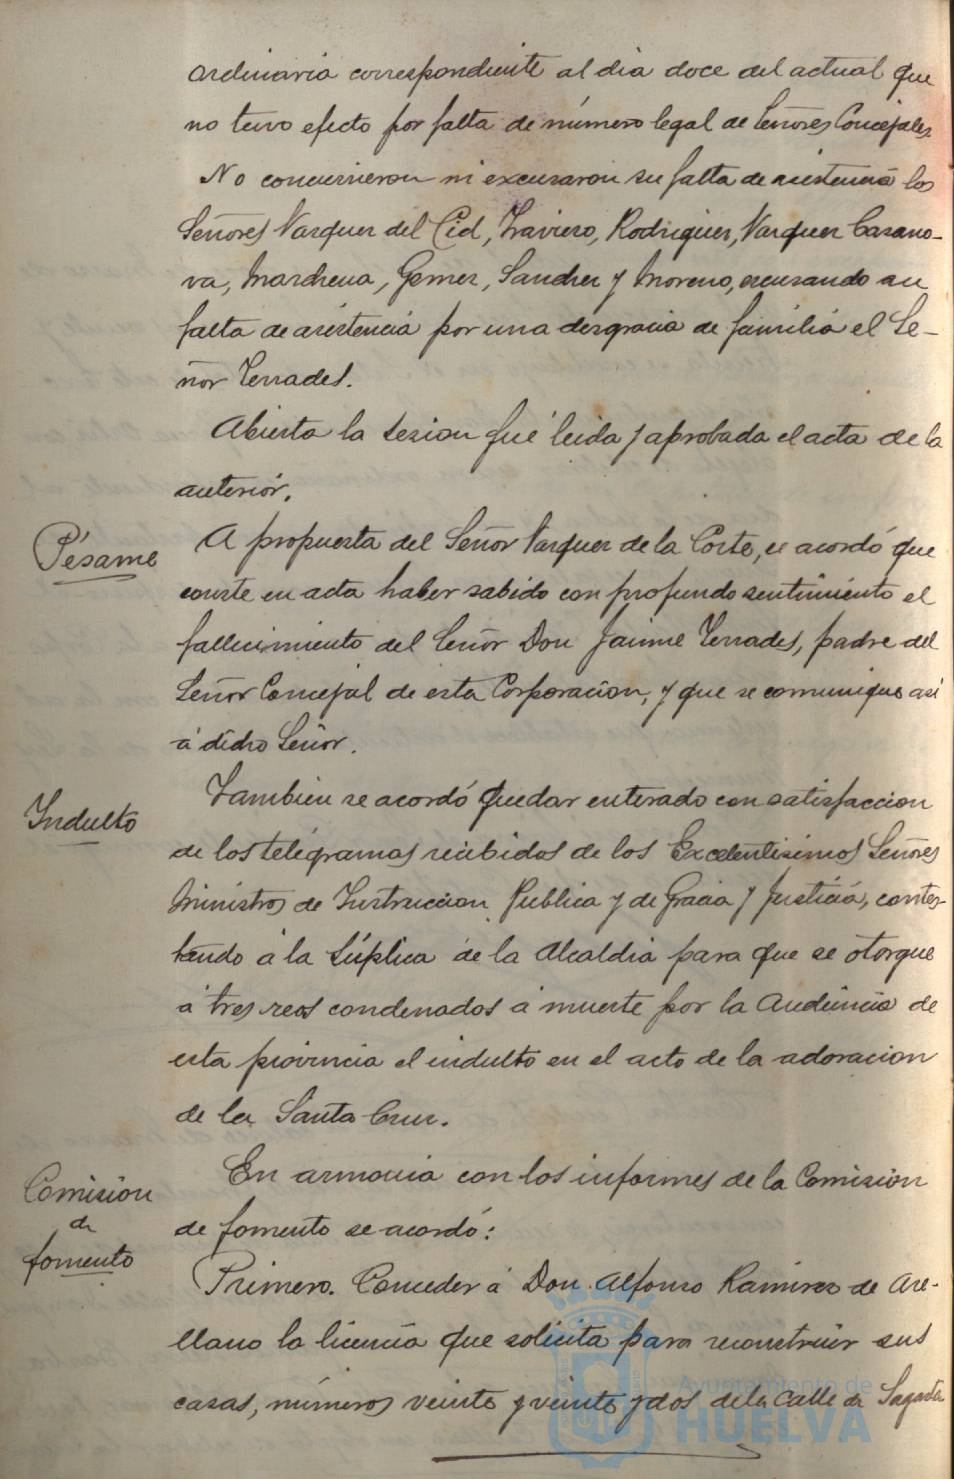 ordinaria correspondiente al dia doce del actual que
no tuvo efecto por falta de número legal de Señores Concejales
No concurrieron ni excusaron su falta de asistencia los
Señores Vazquez del Cid, Traviero, Rodriguez, Vazquez Casano-
va, Marchena, Gomez, Sanchez y Moreno, excusando su
falta de asistencia por una desgracia de familia el Se-
ñor Terrades.
Abierta la sesion fué leida y aprobada el acta de la
anterior.
Pésame
A propuesta del Señor Vazquez de la Corte, se acordó que
conste en acta haber sabido con profundo sentimiento el
fallecimiento del Señor Don Jaime Terrades, padre del
Señor Concejal de esta Corporacion, y que se comunique asi
á dicho Señor.
Indulto
Tambien se acordó quedar enterado con satisfaccion
de los telégramas recibidos de los Excelentisimos Señores
Ministros de Instruccion Publica y de Gracia y Justicia, contes-
tando á la súplica de la Alcaldia para que se otorgue
á tres reos condenados á muerte por la Audiencia de
esta provincia el indulto en el acto de la adoracion
de la Santa Cruz.
Comision
de
fomento
En armonia con los informes de la Comision
de fomento se acordó:
Primero. Conceder á Don Alfonso Ramirez de Are-
llano la licencia que solicita para reconstruir sus
casas, números veinte y veinte y dos de la Calle de Sagasta
Ayuntamiento de
HUELVA